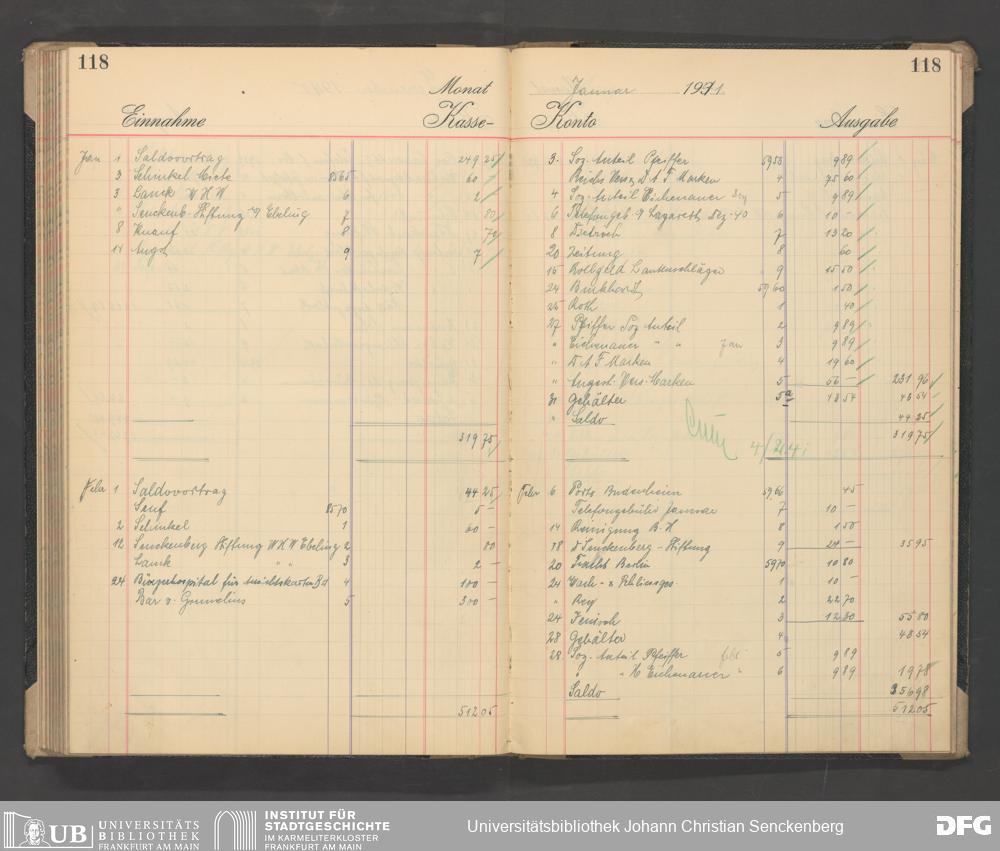 118
Monat
Einnahme Kasse-
Jan 1 Saldovortrag 249 25
3 Schinkel Miete 8565 60 -
3 Lauck W H W 6 2
" Senckenb. Stiftung Ebeling 7 80
8 Knauf 8
14 9 7
319 75
Febr 1 Saldovortrag 44 25
Senf 8570 5 -
2 Schinkel 1 60 -
12 Senckenberg Stiftung W H W Ebeling 2 80
Lauck " " 3 2 -
24 Bürgerhospital für Ansichtskarten 4 100 -
Bar v. Grunelius 5 300 -
512 05
118
Januar 1941.
Konto Ausgabe
3. Soz. Anteil Pfeiffer 5953 9 89
Reichs Vers. D A F Marken 4 75 60
4 Soz. Anteil Eichenauer Dez 5 9 89
6 Telefongeb. Lazareth Dez. 40 6 10 -
8 Dietrich 7 13 20
20 Zeitung 8 60
15 Rollgeld Lautenschläger 9 15 50
24 Burkhardt 5960 1 50
25 Roth 1 40
27 Pfeiffer Soz Anteil 2 9 89
" Eichenauer " " Jan 3 9 89
" D A F Marken 4 19 60
" Angest. Vers. Marken 5 56 - 231 96
31 Gehälter 5a 48 54 48 54
" Saldo 44 25
319 75
4/2.41
Febr 6 Porto Budenheim 5966 45
Telefongebühr Januar 7 10 -
14 Reinigung B. H 8 1 50
18 D Senckenberg-Stiftung 9 24 - 35 95
20 Fracht Berlin 5970 10 80
24 Wach- u Schliessges. 1 10 -
" Rey 2 22 70
24 Jenisch 3 12 30 55 80
28 Gehälter 4 48 54
28 Soz. Anteil Pfeiffer febr 5 9 89
" " H Eichenauer " 6 9 89 19 78
Saldo 356 98
512 05
UB UNIVERSITÄTS
BIBLIOTHEK
FRANKFURT AM MAIN
INSTITUT FÜR
STADTGESCHICHTE
IM KARMELITERKLOSTER
FRANKFURT AM MAIN
Universitätsbibliothek Johann Christian Senckenberg
DFG